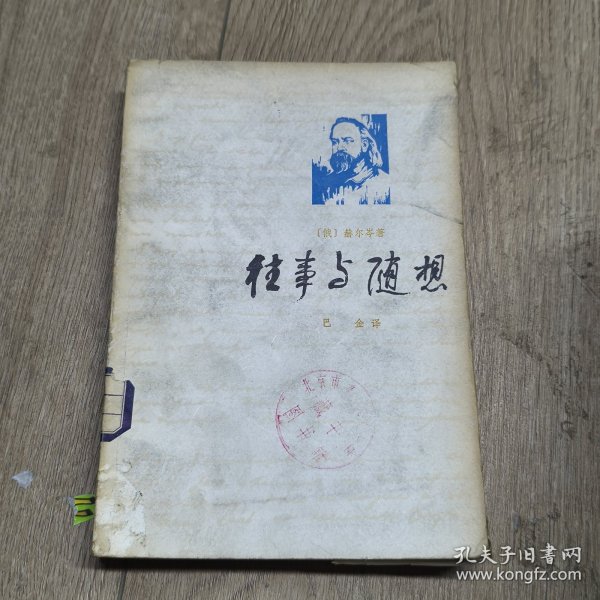 〔俄〕赫尔岑著
往事与随想
巴金译
北京市
孔夫子旧书网
www.kongfz.com